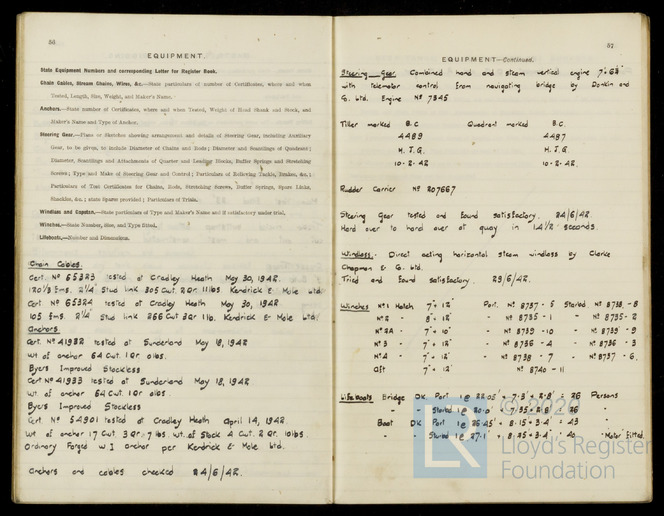 56
EQUIPMENT.
State Equipment Numbers and corresponding Letter for Register Book.
Chain Cables, Stream Chains, Wires, &c.—State particulars of number of Certificates, where and when
Tested, Length, Size, Weight, and Maker's Name.
Anchors.—State number of Certificates, where and when Tested, Weight of Head Shank and Stock, and
Maker's Name and Type of Anchor.
Steering Gear.—Plans or Sketches shewing arrangement and details of Steering Gear, including Auxiliary
Gear, to be given, to include Diameter of Chains and Rods; Diameter and Scantlings of Quadrant;
Diameter, Scantlings and Attachments of Quarter and Leading Blocks, Buffer Springs and Stretching
Screws; Type and Make of Steering Gear and Control; Particulars of Relieving Tackle, Brakes, &c.;
Particulars of Test Certificates for Chains, Rods, Stretching Screws, Buffer Springs, Spare Links,
Shackles, &c.; state Spares provided; Particulars of Trials.
Windlass and Capstan.—State particulars of Type and Maker's Name and if satisfactory under trial.
Winches.—State Number, Size, and Type fitted.
Lifeboats.—Number and Dimensions.
Chain Cables.
Cert. No 65323 tested at Cradley Heath May 30, 1942.
120⅓ fms. 2¼" Stud link 305 Cwt. 2 Qr. 11 lbs. Kendrick & Mole Ltd
Cert No 65324 tested at Cradley Heath May 30, 1942.
105 fms. 2¼" Stud link 266 Cwt 3 Qr 1 lb. Kendrick & Mole Ltd.
Anchors
Cert. No 41932 tested at Sunderland May 18, 1942
Wt of anchor 64 Cwt. 1 Qr 0 lbs.
Byers Improved Stockless
Cert No 41933 tested at Sunderland May 18, 1942.
Wt. of anchor 64 Cwt. 1 Qr 0 lbs.
Byers Improved Stockless
Cert. No 54901 tested at Cradley Heath April 14, 1942.
Wt. of anchor 17 Cwt. 3 Qr. 7 lbs. Wt. of Stock 4 Cwt. 2 Qr. 10 lbs
Ordinary Forged W.I anchor per Kendrick & Mole Ltd.
Anchors and cables checked 24/6/42.
57
EQUIPMENT—Continued.
Steering Gear Combined hand and steam vertical engine
with telemotor control from navigating bridge by Donkin and
Co. Ltd. Engine No 7345
Tiller marked B.C Quadrant marked B.C.
4489 4487
H.T.G. H.T.G.
10.2.42 10.2.42.
Rudder Carrier No 207667
Steering Gear tested and found satisfactory. 24/6/42.
Hard over to hard over at quay in 14½ seconds.
Windlass. Direct acting horizontal steam windlass by Clarke
Chapman & Co. Ltd.
Tried and found satisfactory. 29/6/42.
Winches No 1 Hatch 7" x 12" Port. No 8737 - 5 Starbd No 8738 - 8
No 2 - 8" x 12" - No 8735 - 1 - No 8735 - 2
No 2A - 7" x 10" - No 8739 - 10 - No 8739 - 9
No 3 - 7" x 12" - No 8736 - 4 - No 8736 - 3
No 4 - 7" x 12" - No 8738 - 7 - No 8737 - 6.
Aft 7" x 12" No 8740 - 11
Lifeboats Bridge Dk Port 1 @ 22.05' x 7.3' x 2.8' = 26 Persons
- - Starbd 1 @ = 26 -
Boat Dk Port 1 @ 26.45' x 8.15 x 3.4' = 43
- - Starbd 1 @ 27.1' x 8.25 x 3.4' = 40 - Motor fitted.
LR
© 2020
Lloyd's Register
Foundation